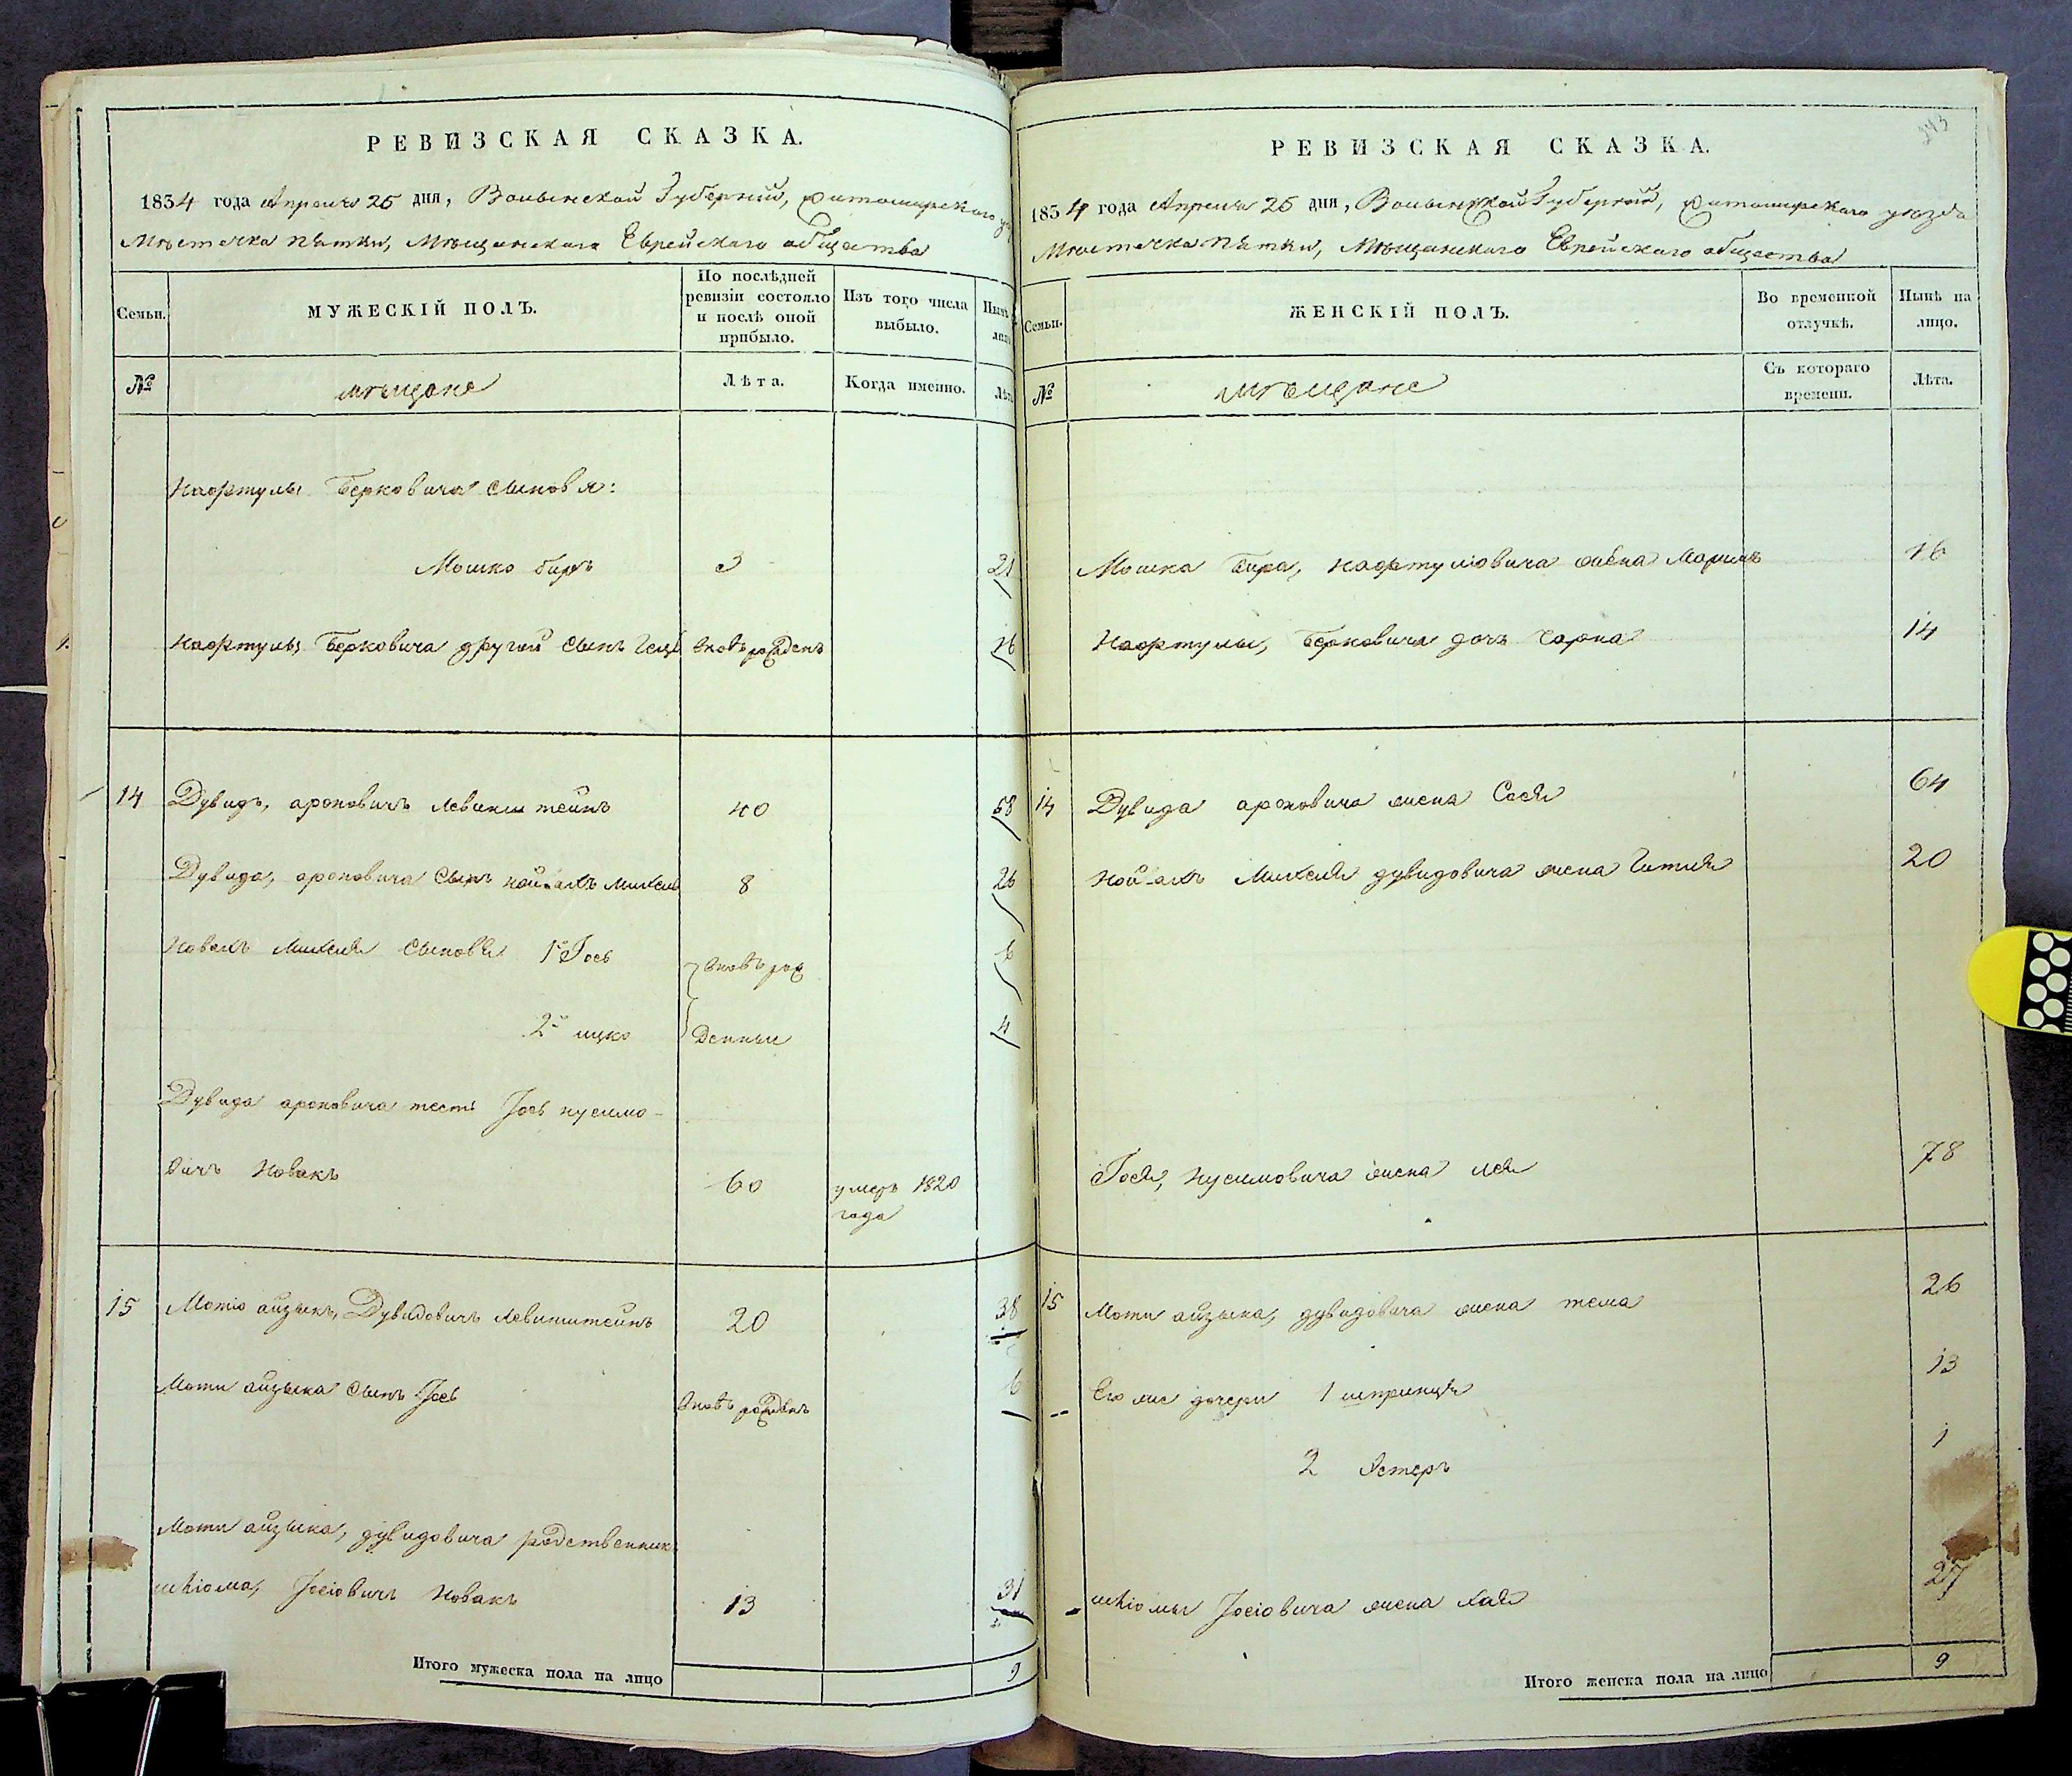 РЕВИЗСКАЯ СКАЗКА.
1834 года Апреля 25 дня, Волынской Губерній, Житомирскаго
Мѣстечка Пятки, Мѣщанскаго Еврейскаго общества
Семьи.
МУЖЕСКІЙ ПОЛЪ.
По послѣдней
ревизіи состояло
и послѣ оной
прибыло.
Изъ того числа
выбыло.
№
мѣщане
Лѣта.
Когда именно.
Нафтулы Берковича сыновя:
Мошко биръ 3 21
Нафтулы Берковича другий сынъ вновъ рожденъ 16
14 Дувидъ, ароновичъ Левинштейнъ 40 58
Дувида, ароновича сынъ Михель 8 26
Новакъ Михеля сыновя 1й Іось вновъ рож 6
2й ицко денныи 4
Дувида ароновича тесть Іось нусимо-
вичъ Новакъ 60 умеръ 1820
года
15 Мотіо айзыкъ, Дувидовичъ Левинштейнъ 20 38
Моти айзыка сынъ Іось вновъ рожденъ 6
Моти айзыка, дувидовича родственникъ
шліома, Іосіовичъ Новакъ 13 31
Итого мужеска пола на лицо 9
РЕВИЗСКАЯ СКАЗКА.
1834 года Апреля 25 дня, Волынской Губерній, Житомирскаго уѣзда
Мѣстечка Пятки, Мѣщанскаго Еврейскаго общества
Семьи.
ЖЕНСКІЙ ПОЛЪ.
Во временной
отлучкѣ.
Нынѣ на
лицо.
№
мѣщане
Съ котораго
времени.
Лѣта.
Мошка Бира, нафтуліовича жена Маримъ 16
Нафтулы, Берковича дочъ Чарна 14
14 Дувида ароновича жена Сося 64
Михеля дувидовича жена Гитля 20
Іося, Нусимовича жена лея 78
15 Моти айзыка, дувидовича жена тема 26
Его же дочери 1 шпринця 13
2 Эстеръ 1
шліомы Іосіовича жена хая 27
Итого женска пола на лицо 9